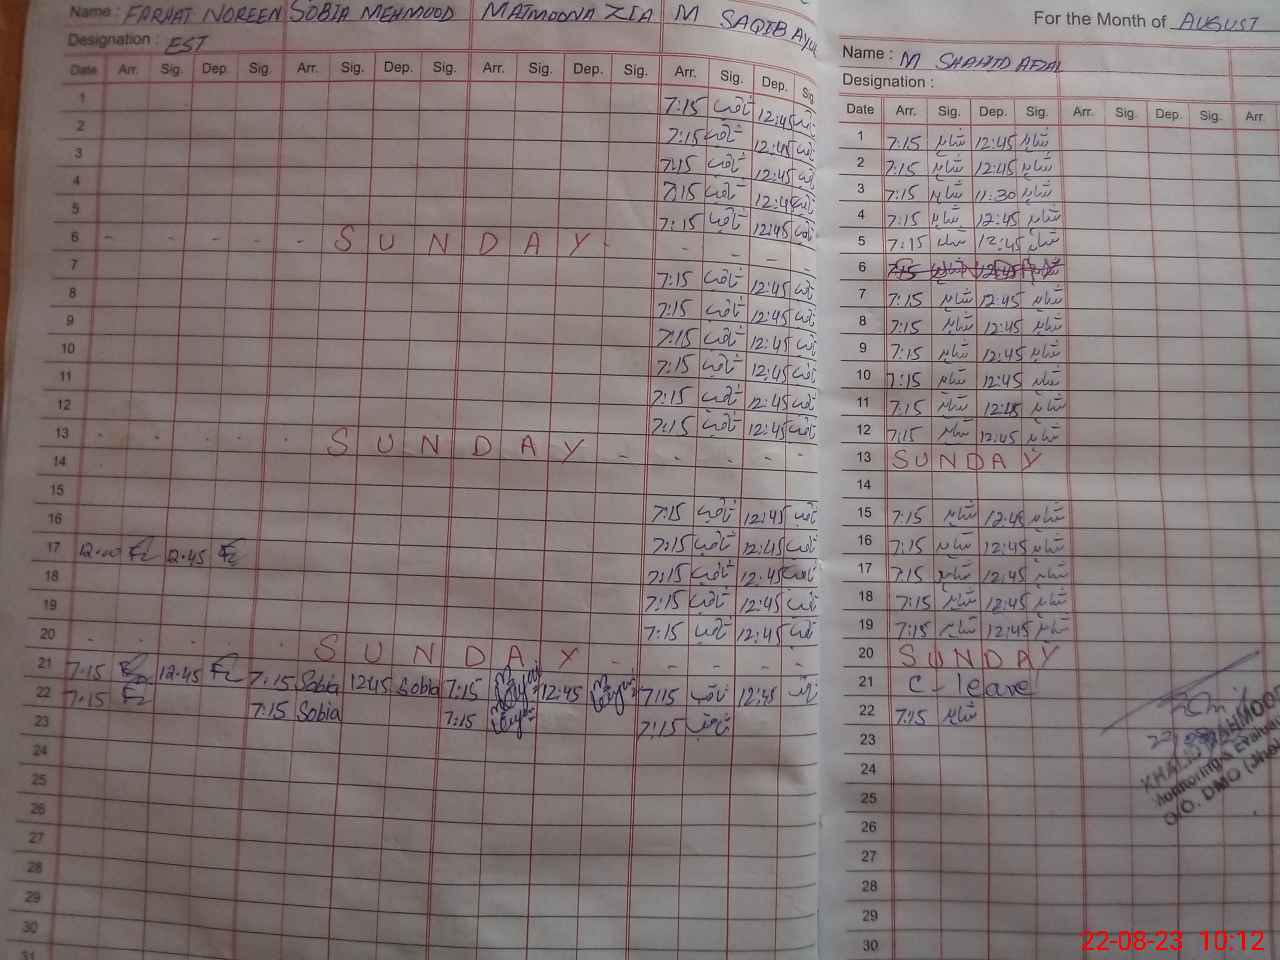 Name : FARHAT NOREEN SOBIA MEHMOOD MATMOONA ZIA M SAQIB
Designation : EST
Date Arr. Sig. Dep. Sig. Arr. Sig. Dep. Sig. Arr. Sig. Dep. Sig. Arr. Sig. Dep. Sig
1 7:15 ثاقب 12:45 ثاقب
2 7:15 ثاقب 12:45 ثاقب
3 7:15 ثاقب 12:45 ثاقب
4 7:15 ثاقب 12:45 ثاقب
5 7:15 ثاقب 12:45 ثاقب
6 - - - - - S U N D A Y - - - - -
7 7:15 ثاقب 12:45 ثاقب
8 7:15 ثاقب 12:45 ثاقب
9 7:15 ثاقب 12:45 ثاقب
10 7:15 ثاقب 12:45 ثاقب
11 7:15 ثاقب 12:45 ثاقب
12 7:15 ثاقب 12:45 ثاقب
13 - - - - S U N D A Y - - - - -
14
15 7:15 ثاقب 12:45 ثاقب
16 7:15 ثاقب 12:45 ثاقب
17 12:00 12:45 7:15 ثاقب 12:45 ثاقب
18 7:15 ثاقب 12:45 ثاقب
19 7:15 ثاقب 12:45 ثاقب
20 - - - - - S U N D A Y - - - - -
21 7:15 12:45 7:15 Sobia 1245 Sobia 7:15 12:45 7:15 ثاقب 12:45 ثاقب
22 7:15 7:15 Sobia 7:15 7:15 ثاقب
23
24
25
26
27
28
29
30
31
For the Month of AUGUST
Name : M SHAHID
Designation :
Date Arr. Sig. Dep. Sig. Arr. Sig. Dep. Sig. Arr.
1 7:15 شاہد 12:45 شاہد
2 7:15 شاہد 12:45 شاہد
3 7:15 شاہد 11:30 شاہد
4 7:15 شاہد 12:45 شاہد
5 7:15 شاہد 12:45 شاہد
6
7 7:15 شاہد 12:45 شاہد
8 7:15 شاہد 12:45 شاہد
9 7:15 شاہد 12:45 شاہد
10 7:15 شاہد 12:45 شاہد
11 7:15 شاہد 12:45 شاہد
12 7:15 شاہد 12:45 شاہد
13 SUNDAY
14
15 7:15 شاہد 12:45 شاہد
16 7:15 شاہد 12:45 شاہد
17 7:15 شاہد 12:45 شاہد
18 7:15 شاہد 12:45 شاہد
19 7:15 شاہد 12:45 شاہد
20 SUNDAY
21 C-leave
22 7:15 شاہد
23
24
25
26
27
28
29
30
KHALID MAHMOOD
Monitoring &
O/O. DMO
22-08-23 10:12